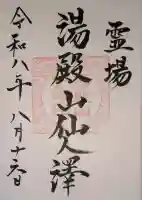 霊場
湯殿山仙人澤
令和八年 八月十六日